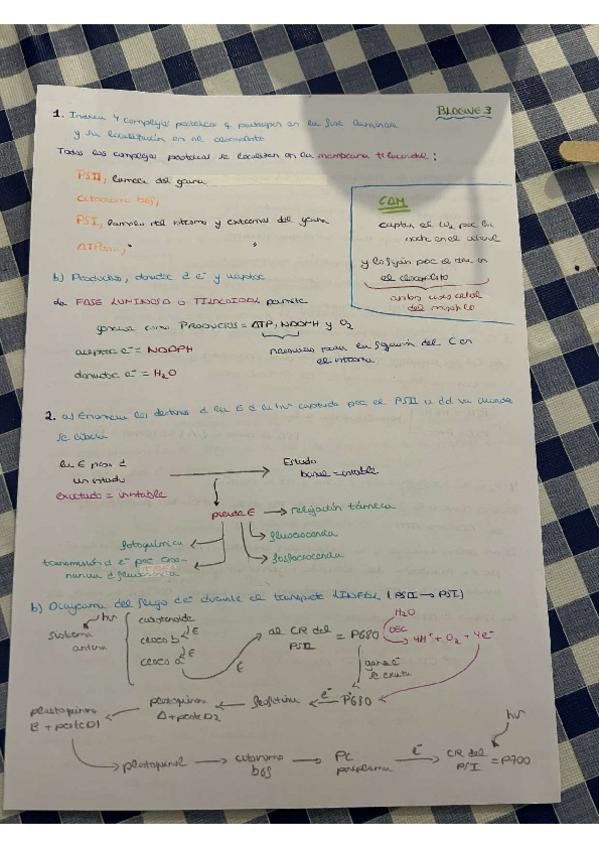 BLOQUE 3
1. Indica 4 complejos proteicos q participan en la fase luminosa
y su localización en el cloroplasto
Todos los complejos proteicos se localizan en la membrana tilacoidal:
PSII, lamela del grana
citocromo b6f,
PSI, lamela del estroma y externas del grana
ATPasa, "
CAM
captan el CO2 por la
noche en el
y lo fijan por el día en
el cloroplasto
ambos
del mesófilo
b) Productos, donador d e⁻ y aceptor
La FASE LUMINOSA O TILACOIDAL permite
generar como PRODUCTOS = ATP, NADPH y O2
aceptor e⁻ = NADPH
donador e⁻ = H2O
necesarios para la fijación del C en
el estroma
2. a) Enumera los destinos d la E d la hv captada por el PSII
se libera
la E pasa d
un estado
excitado = inestable
Estado
basal = estable
pierde E
relajación térmica
fluorescencia
fosforescencia
fotoquímica
transmisión d e⁻ por
b) Diagrama del flujo de e⁻ durante el transporte LINEAL (PSII → PSI)
hv
sistema
antena
carotenoide
cloro b
E
cloro a
E
E
al CR del
PSII
= P680
H2O
OEC
4H⁺ + O2 + 4e⁻
gana E
se excita
P*680
e⁻
feofitina
plastoquinona
A + prot D2
plastoquinona
B + prot D1
plastoquinol
citocromo
b6f
PC
e⁻
CR del
PSI
= P700
hv